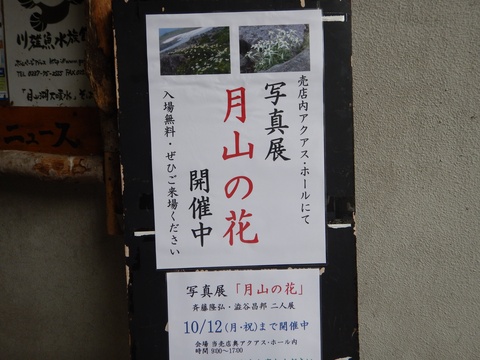 売店内アクアス・ホールにて
写真展
月山の花
開催中
入場無料・ぜひご来場ください
写真展「月山の花」
斉藤隆弘・澁谷昌邦 二人展
10/12(月・祝)まで開催中
会場 当売店奥アクアス・ホール内
時間 9:00～17:00
ニュース